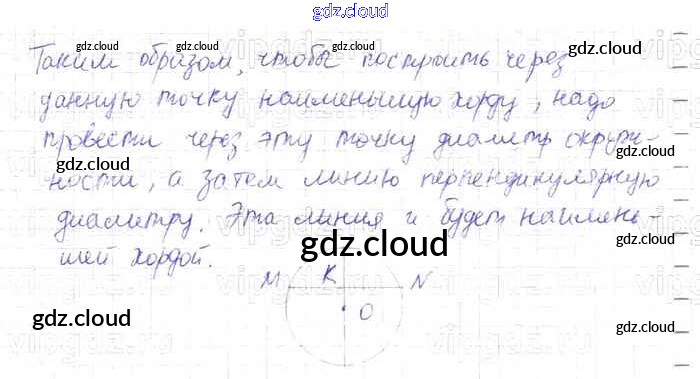 gdz.cloud
Таким образом, чтобы построить через
данную точку наименьшую хорду, надо
провести через эту точку диаметр окруж-
ности, а затем линию перпендикулярную
диаметру. Эта линия и будет наимень-
шей хордой.
M K N
O
gdz.cloud
gdz.cloud
gdz.cloud
gdz.cloud
gdz.cloud
gdz.cloud
gdz.cloud
gdz.cloud
gdz.cloud
gdz.cloud